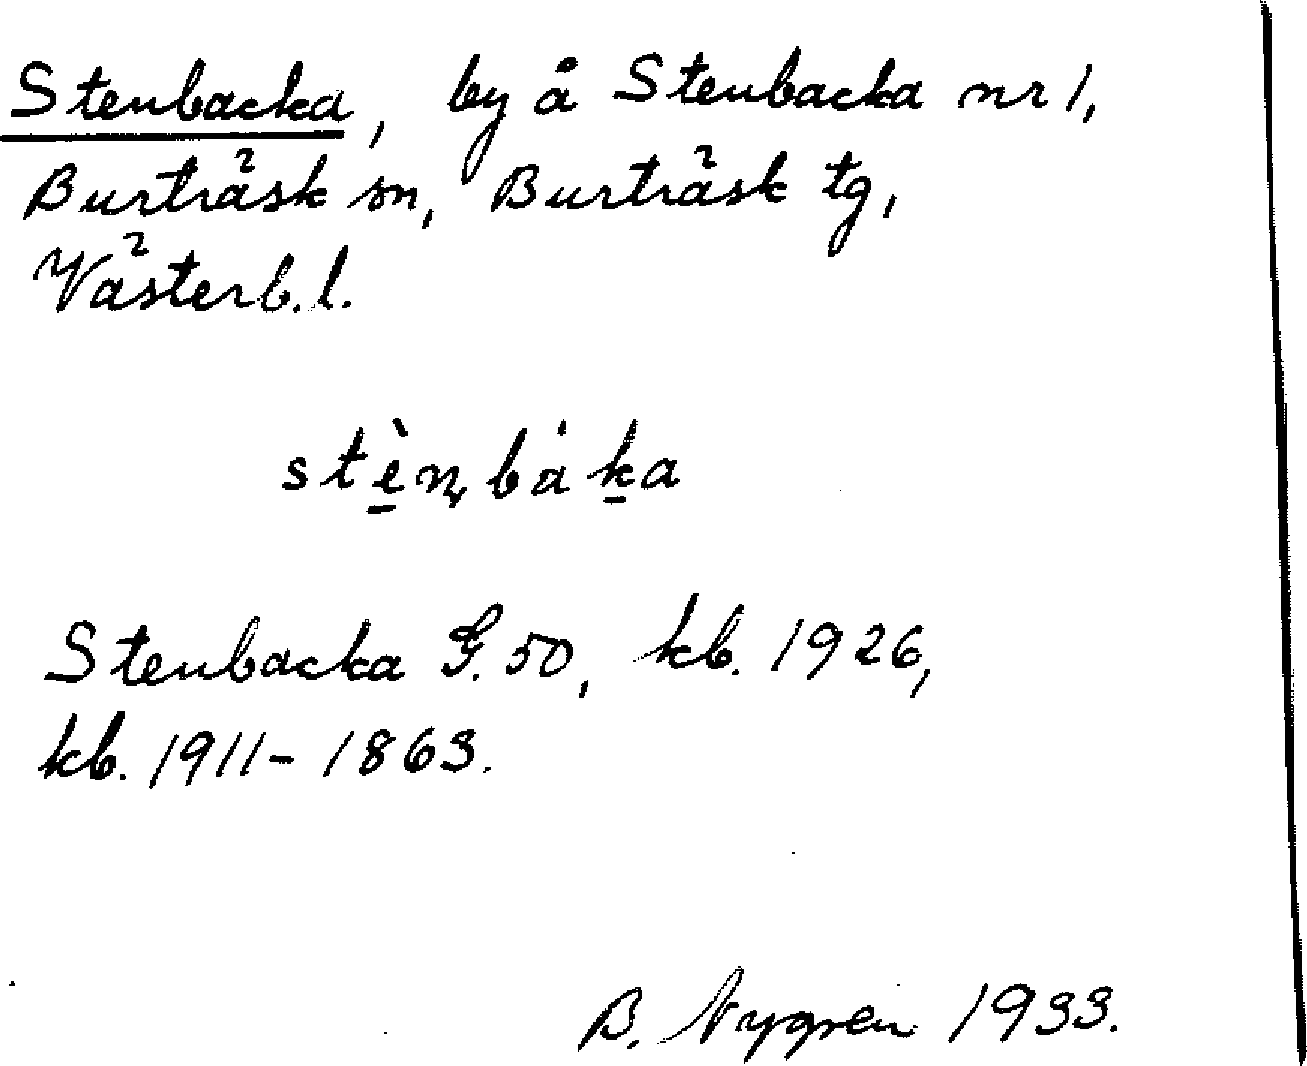 Stenbacka, by å Stenbacka nr 1,
Burträsk sn, Burträsk tg,
Västerb. l.
stè̱n̡bá́ḵa
Stenbacka G. 50, kb. 1926,
kb. 1911-1863.
B. Nygren 1933.